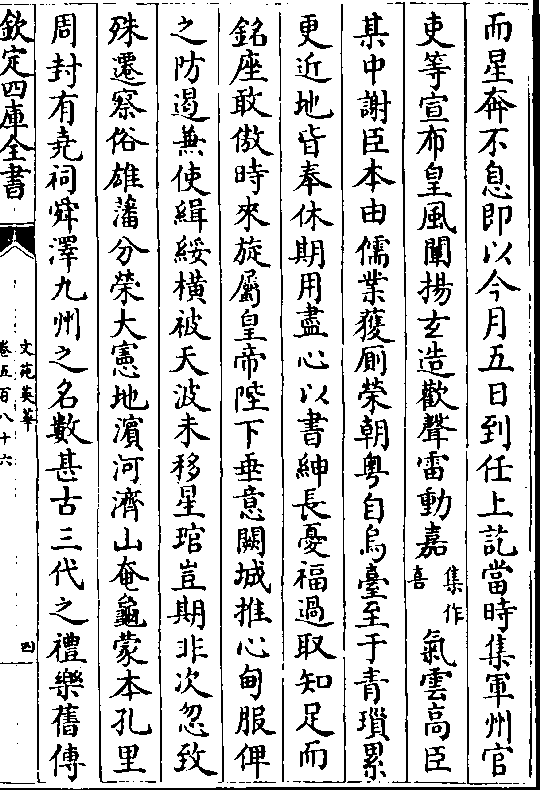 而星奔不息即以今月五日到任上訖當時集軍州官
吏等宣布皇風闡揚玄造歡聲雷動嘉集作喜氣雲高臣
某中謝臣本由儒業獲厠榮朝粤自烏臺至于青瑣累
更近地皆奉休期用盡心以書紳長憂福過取知足而
銘座敢傲時來旋屬皇帝陛下垂意闕城推心甸服俾
之防遏兼使緝綏横被天波未移星琯豈期非次忽致
殊遷察俗雄藩分榮大憲地濵河濟山奄龜蒙本孔里
周封有堯祠舜澤九州之名數甚古三代之禮樂舊傳
欽定四庫全書
文苑英華
卷五百八十六
四